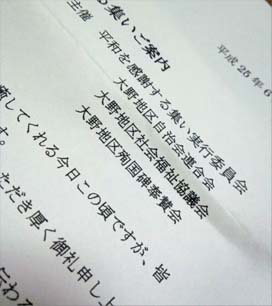 平成25年6
る集いご案内
主催 平和を感謝する集い実行委員会
大野地区自治会連合会
大野地区社会福祉協議会
大野地区殉国碑奉賛会
してくれる今日この頃ですが、皆
す。
ただき厚く御礼申し上
伝わる